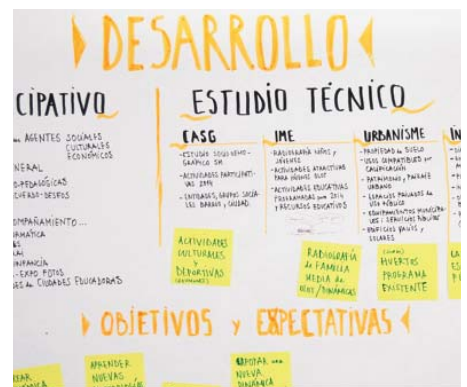 DESARROLLO
CIPATIVO
AGENTES SOCIALES
CULTURALES
ECONÓMICOS
NERAL
O-PEDAGÓGICAS
CUERDO-DESEOS
OMPAÑAMIENTO...
RMÁTICA
INFANCIA
-EXPO FOTOS
DE CIUDADES EDUCADORAS
ESTUDIO TÉCNICO
CASG
-ESTUDIO SOCIODEMO-
GRÁFICO SM
-ACTIVIDADES PARTICIPATI-
VAS 2014
-ENTIDADES, GRUPOS SOCIA-
LES BARRIO y CIUDAD.
ACTIVIDADES
CULTURALES
Y
DEPORTIVAS
IME
-RADIOGRAFÍA NIÑOS y
JÓVENES
-ACTIVIDADES ATRACTIVAS
PARA JÓVENES
-ACTIVIDADES EDUCATIVAS
PROGRAMADAS 2014
Y RECURSOS EDUCATIVOS
RADIOGRAFÍA
DE FAMILIA
MEDIA DE
URBANISME
-PROPIEDAD DE SUELO
-USOS COMPATIBLES POR
CALIFICACIÓN
-PATRIMONIO y PAISAJE
URBANO
-ESPACIOS PRIVADOS DE
USO PÚBLICO
-EQUIPAMIENTOS MUNICIPA-
LES / SERVICIOS PÚBLICOS
-EDIFICIOS VACÍOS y
SOLARES
HUERTOS
PROGRAMA
EXISTENTE
OBJETIVOS y EXPECTATIVAS
APRENDER
NUEVAS
APORTAR una
NUEVA
DINÁMICA